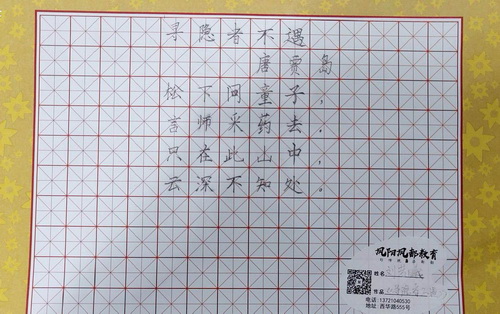 寻隐者不遇
唐 贾岛
松下问童子，
言师采药去．
只在此山中，
云深不知处。
凤阳凤都教育
姓名
电话：13721040530
地址：西华路555号